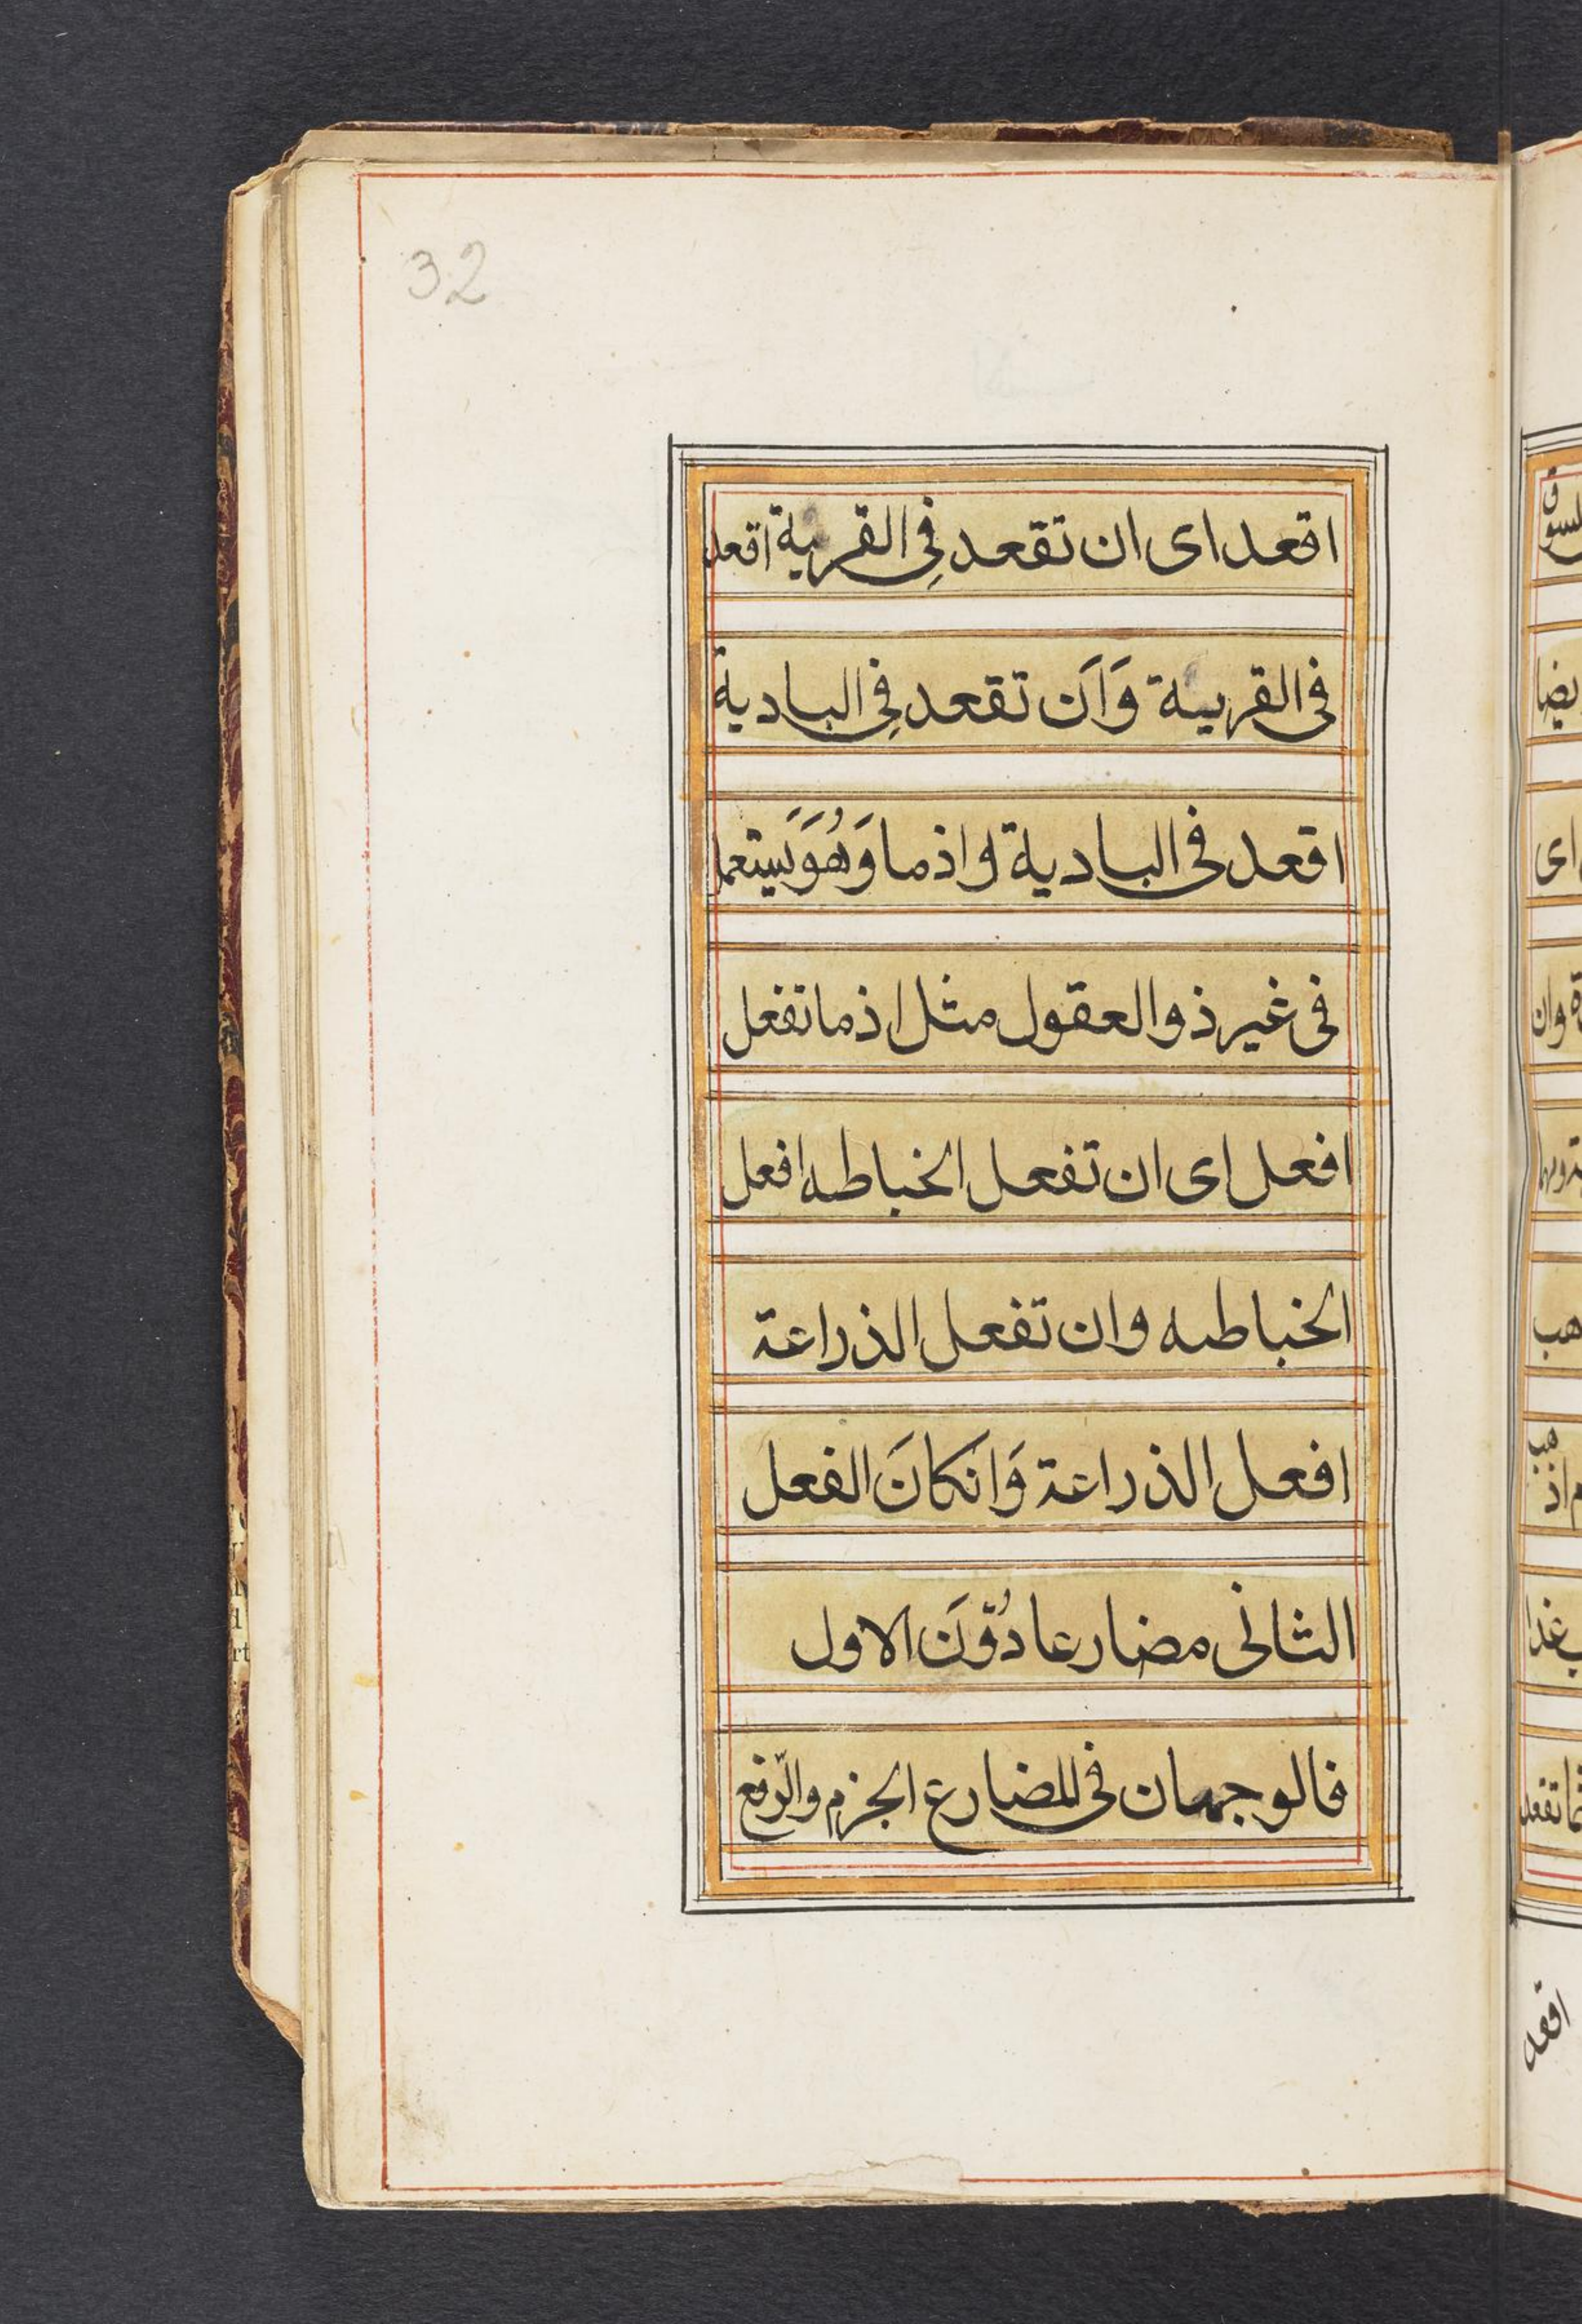 32
اقعد اى ان تقعد فِى القرية اقعد
فى القرية وَاَن تقعد فِى البادية
اقعد فى البادية و اذما وَهُوَ يَستعمل
فى غير ذو العقول مثل اذما تفعل
افعل اى ان تفعل الخباطه افعل
الخباطه وان تفعل الذراعة
افعل الذراعة وَانكانَ الفعل
الثانى مضارعا دُوَنَ الاول
فالوجهان فى المضارع الجزم والرّفع
اقعد